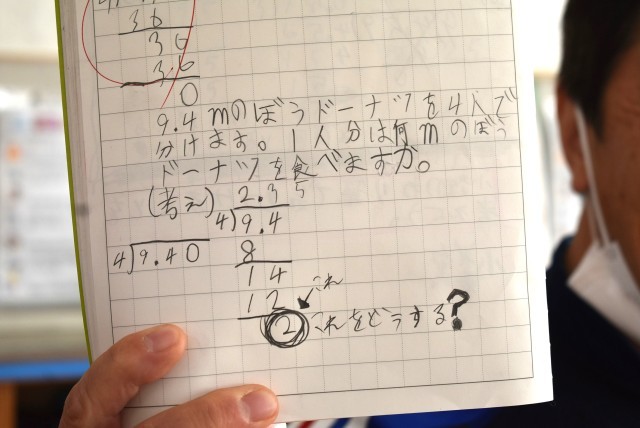 36
36
36
0
9.4mのぼうドーナツを4人で
分けます。1人分は何mのぼう
ドーナツを食べますか。
(考え) 2.35
4)9.4
4)9.40 8
14
12 これ
2 これをどうする?